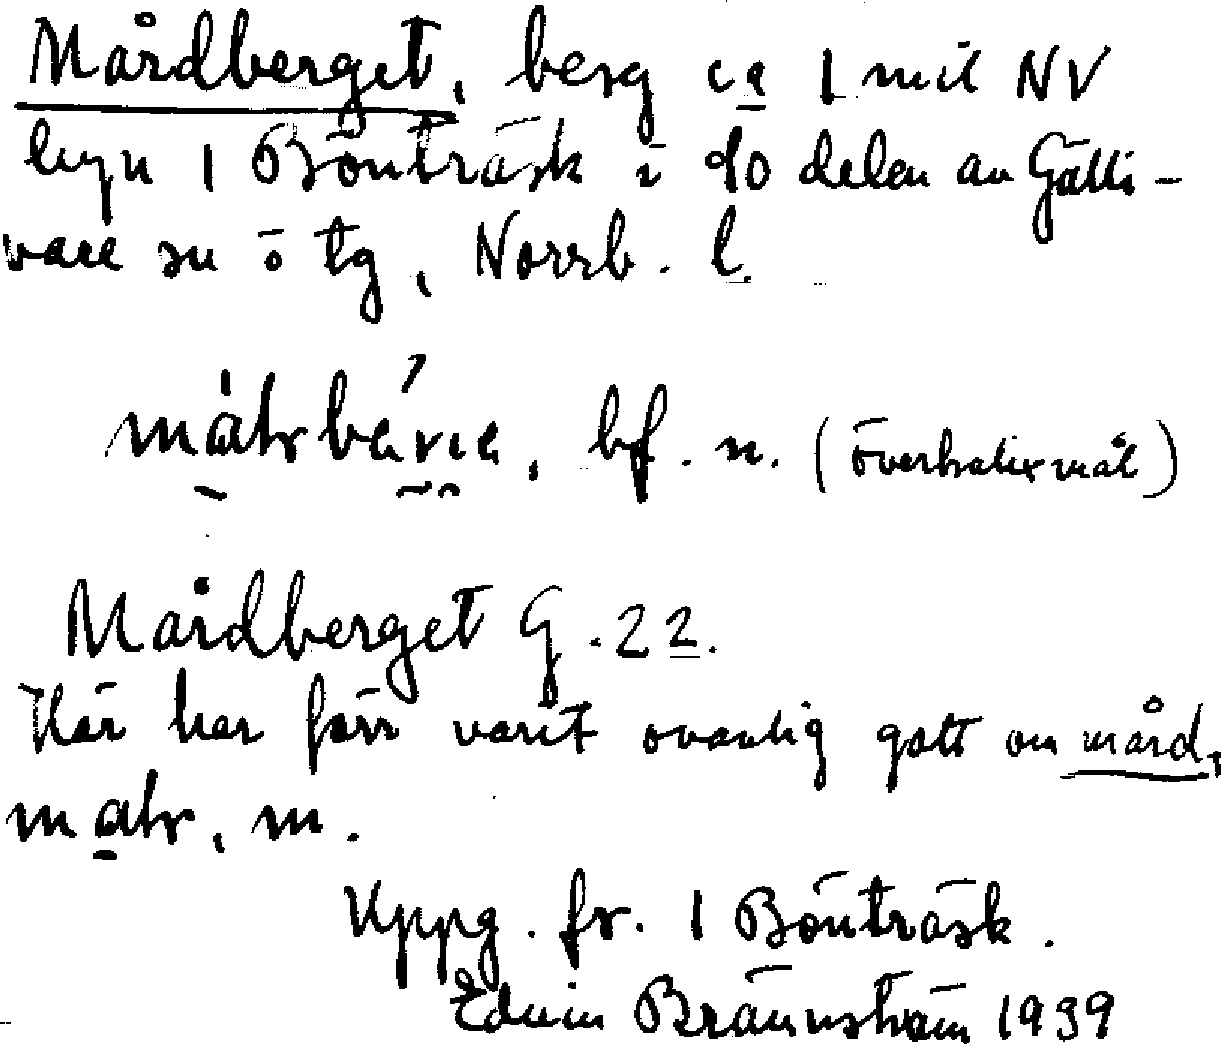 Mårdberget, berg ca 1 mil NV
byn 1 Bönträsk i sö delen av Gälli-
vare sn ö tg, Norrb. l.
bf. n. (överkalixmål)
Mårdberget G. 22.
Här har förr varit ovanlig gott om mård,
m.
Uppg. fr. 1 Bönträsk.
Edvin Brännström 1939